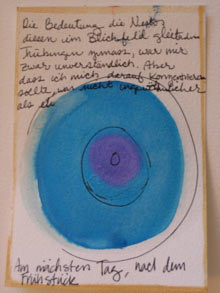 Die Bedeutung, die
diesen im Blickfeld
Trübungen zumass, war mir
zwar unverständlich. Aber
dass ich mich darauf konzentrieren
sollte, war nicht
als
Am nächsten Tag, nach dem
Frühstück